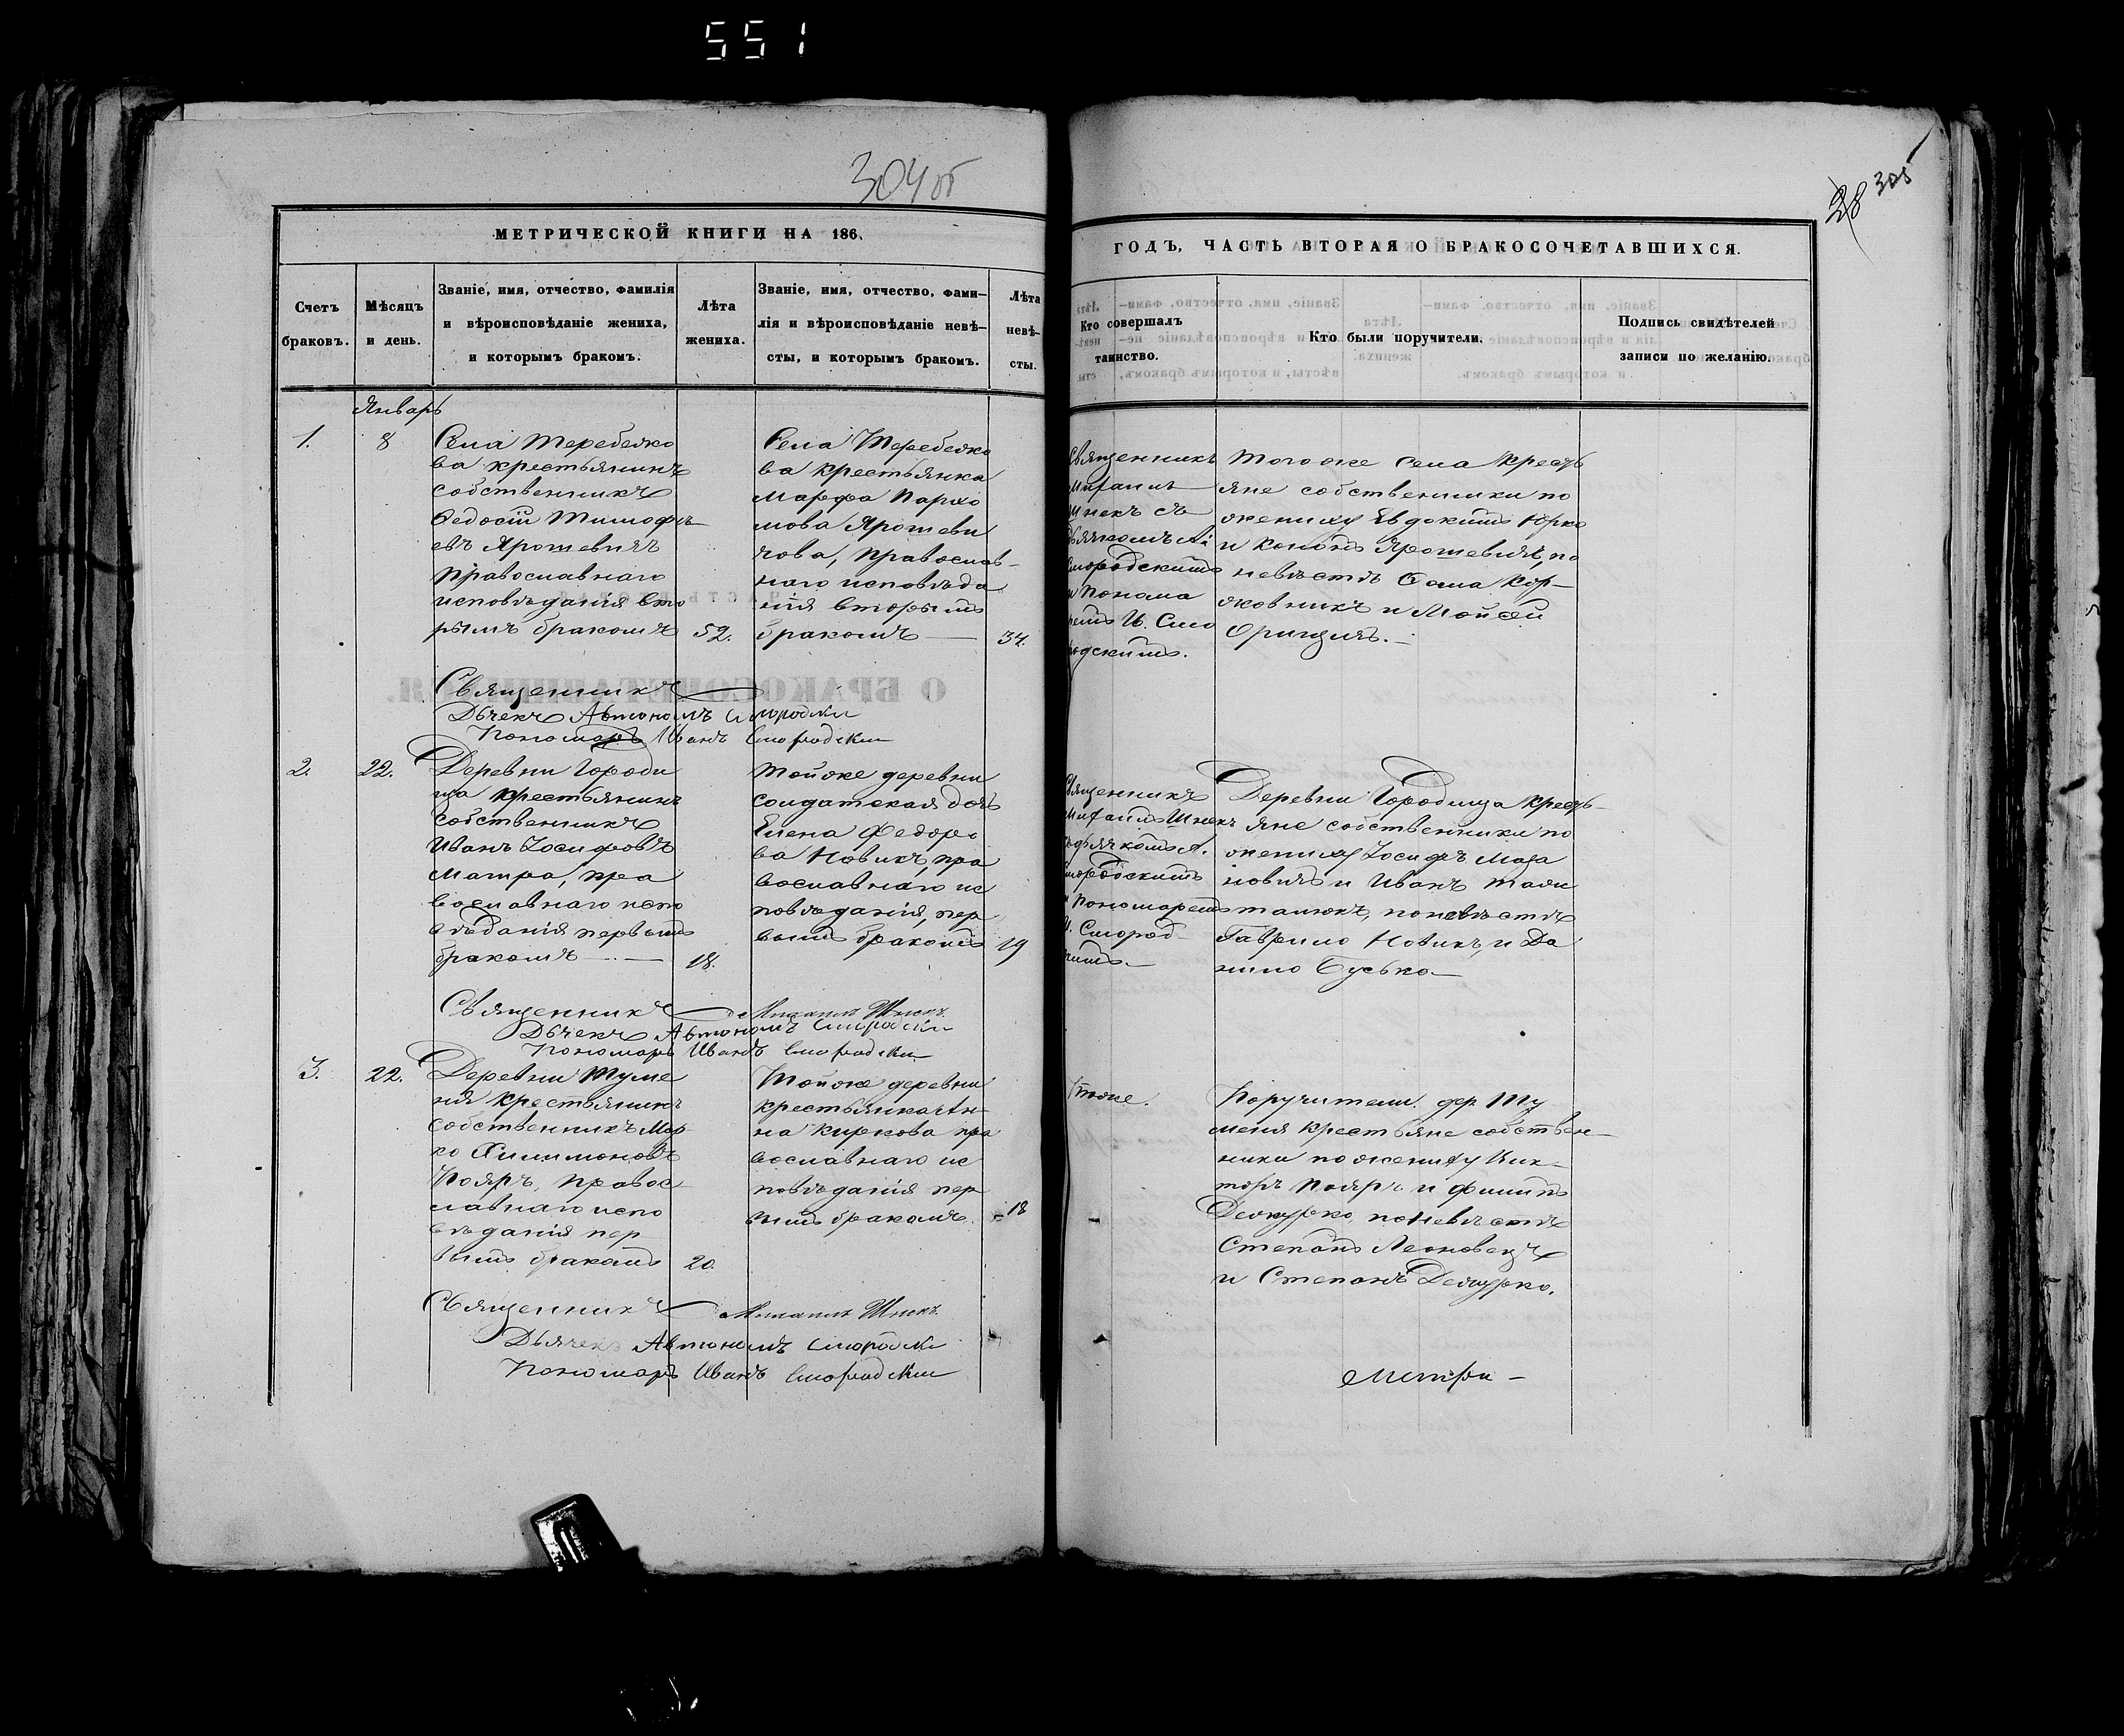 551
304 об
28 305
МЕТРИЧЕСКОЙ КНИГИ НА 186
ГОДЪ, ЧАСТЬ ВТОРАЯ О БРАКОСОЧЕТАВШИХСЯ.
Счетъ
браковъ.
Мѣсяцъ
и день.
Званіе, имя, отчество, фамилія
и вѣроисповѣданіе жениха,
и которымъ бракомъ.
Лѣта
жениха.
Званіе, имя, отчество, фами-
лія и вѣроисповѣданіе невѣ-
сты, и которымъ бракомъ.
Лѣта
невѣ-
сты.
Кто совершалъ
таинство.
Кто были поручители.
Подпись свидѣтелей
записи по желанію.
Январь
1.
8
Села Теребежо
ва крестьянинъ
собственникъ
Ѳедосій Тимофѣ
евъ Ярошевичъ
православнаго
исповѣданія вто
рымъ бракомъ
52.
Села Теребежо
ва крестьянка
Марфа Пархо
мова Ярошеви
чова, православ-
наго исповѣда
нія вторымъ
бракомъ
34.
Священникъ
Михаилъ
Шнекъ съ
дьячкомъ А.
Смородскимъ
и понома
ремъ И. Смо
родскимъ.
Того же села кресть
яне собственники по
жениху Евдокимъ Юрко
и Кононъ Ярошевичъ, по
невѣстѣ Сава Кор-
жовникъ и Мойсей
Грицукъ.
Священникъ
Дьячекъ Автономъ Смородски
Пономарь Иванъ Смородски
2.
22.
Деревни Городи
ща крестьянинъ
собственникъ
Иванъ Іосифовъ
Матра, пра
вославнаго испо
вѣданія первымъ
бракомъ
18.
Той же деревни
солдатская дочь
Елена Федоро
ва Новикъ, пра
вославнаго ис
повѣданія, пер
вымъ бракомъ
19
Священникъ
Михаилъ Шнекъ
съ дьячкомъ А.
Смородскимъ
и пономаремъ
И. Смород-
скимъ
Деревни Городища кресть-
яне собственники по
жениху Іосифъ Маза
новичъ и Иванъ
по невѣстѣ
Гаврило Новикъ, и Да
нило Бусько
Священникъ Михаилъ Шнекъ
Дьячекъ Автономъ Смородски
Пономарь Иванъ Смородски
3.
22.
Деревни Туме
ня крестьянинъ
собственникъ Мар
ко Филимоновъ
Пояръ, правос
лавнаго испо
вѣданія пер
вымъ бракомъ
20
Той же деревни
крестьянка Ан
на Киркова пра
вославнаго ис
повѣданія пер
вымъ бракомъ.
18
Тоже.
Поручители. дер. Ту
меня крестьяне собствен-
ники по жениху Вик-
торъ Пояръ и Филипъ
Демурко, по невѣстѣ
Степанъ Леоновецъ
и Степанъ Демурко.
Священникъ Михаилъ Шнекъ
Дьячекъ Автономъ Смородски
Пономарь Иванъ Смородски
Метри-